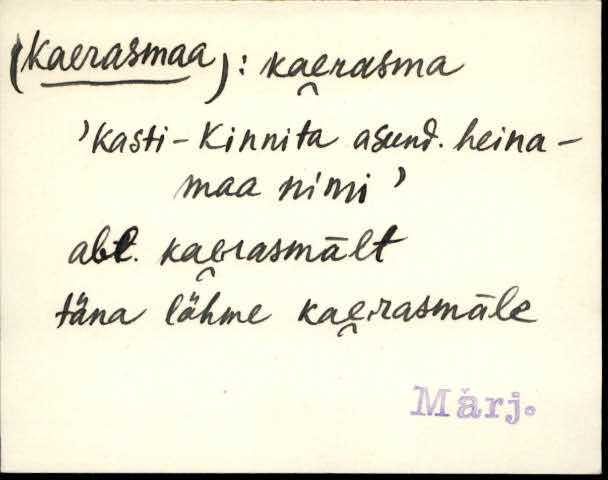 (kaerasmaa): kae̯rasma
'Kasti-Kinnita asund. heina-
maa nimi'
abl. kae̯rasmālt
täna lähme kae̯rasmāle
Märj.